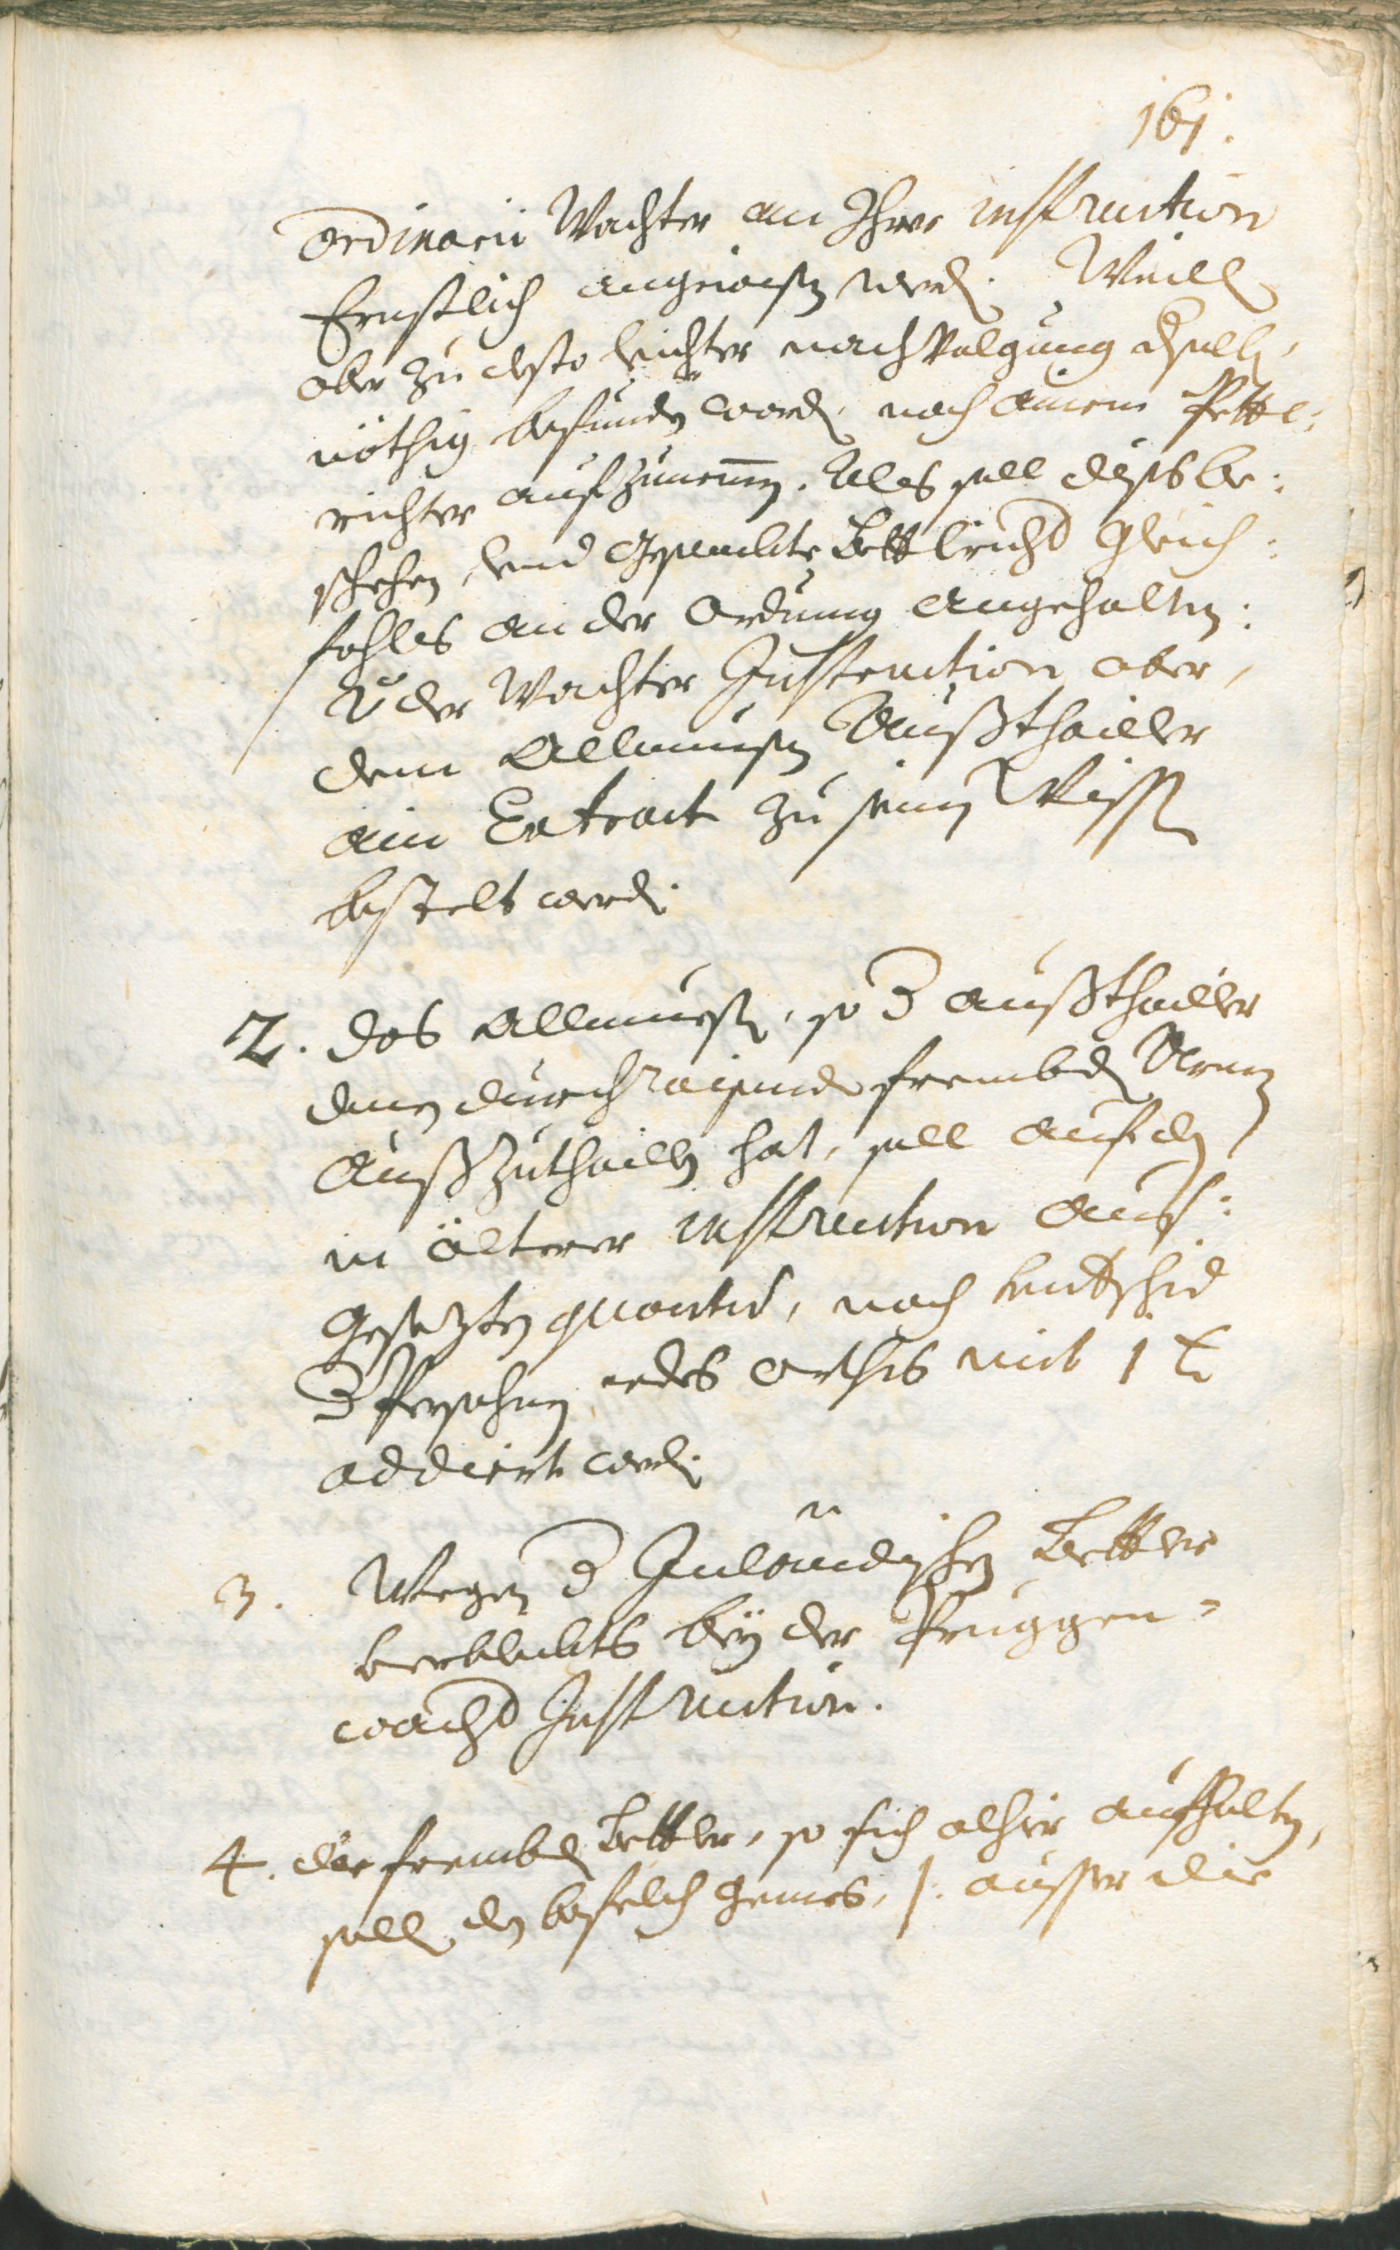 161.
ordinarii Wachter an Ihrer instruction
Ernstlich angewisen werd. Weill
aber zu desto leichter nachvolgung dessell,
nöthig befunden word, noch ainem Pettl:
richter aufzunemen. Alls soll diss be:
schehen, und gesambte Bettlrichter gleich:
fahls an der Ordnung angehalten:
Und der Wachter Instruction aber,
dem Allmuesen Außthailler
ain Extract zu seinen Wissen
bestelt werd.
2. das Allmuesen, so der Außthailler
denen durchraisende frembden Armen
Außzuthaillen hat, soll auf den
in älterer instruction auf:
gesezten quanto, nach entschid
der Persohnen iedes orths mit 1 x
addiert werd.
3. Wegen der Inländischen Bettler
verbleibts bey der Pruggen=
wacht Instruction.
4. die frembden Bettler, so sich alhier aufhalten,
sollen den befelch gemes, /: ausser die